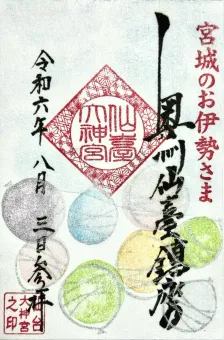 宮城のお伊勢さま
奥州仙臺鎮座
仙臺大神宮
令和六年八月三日参拝
仙台大神宮之印